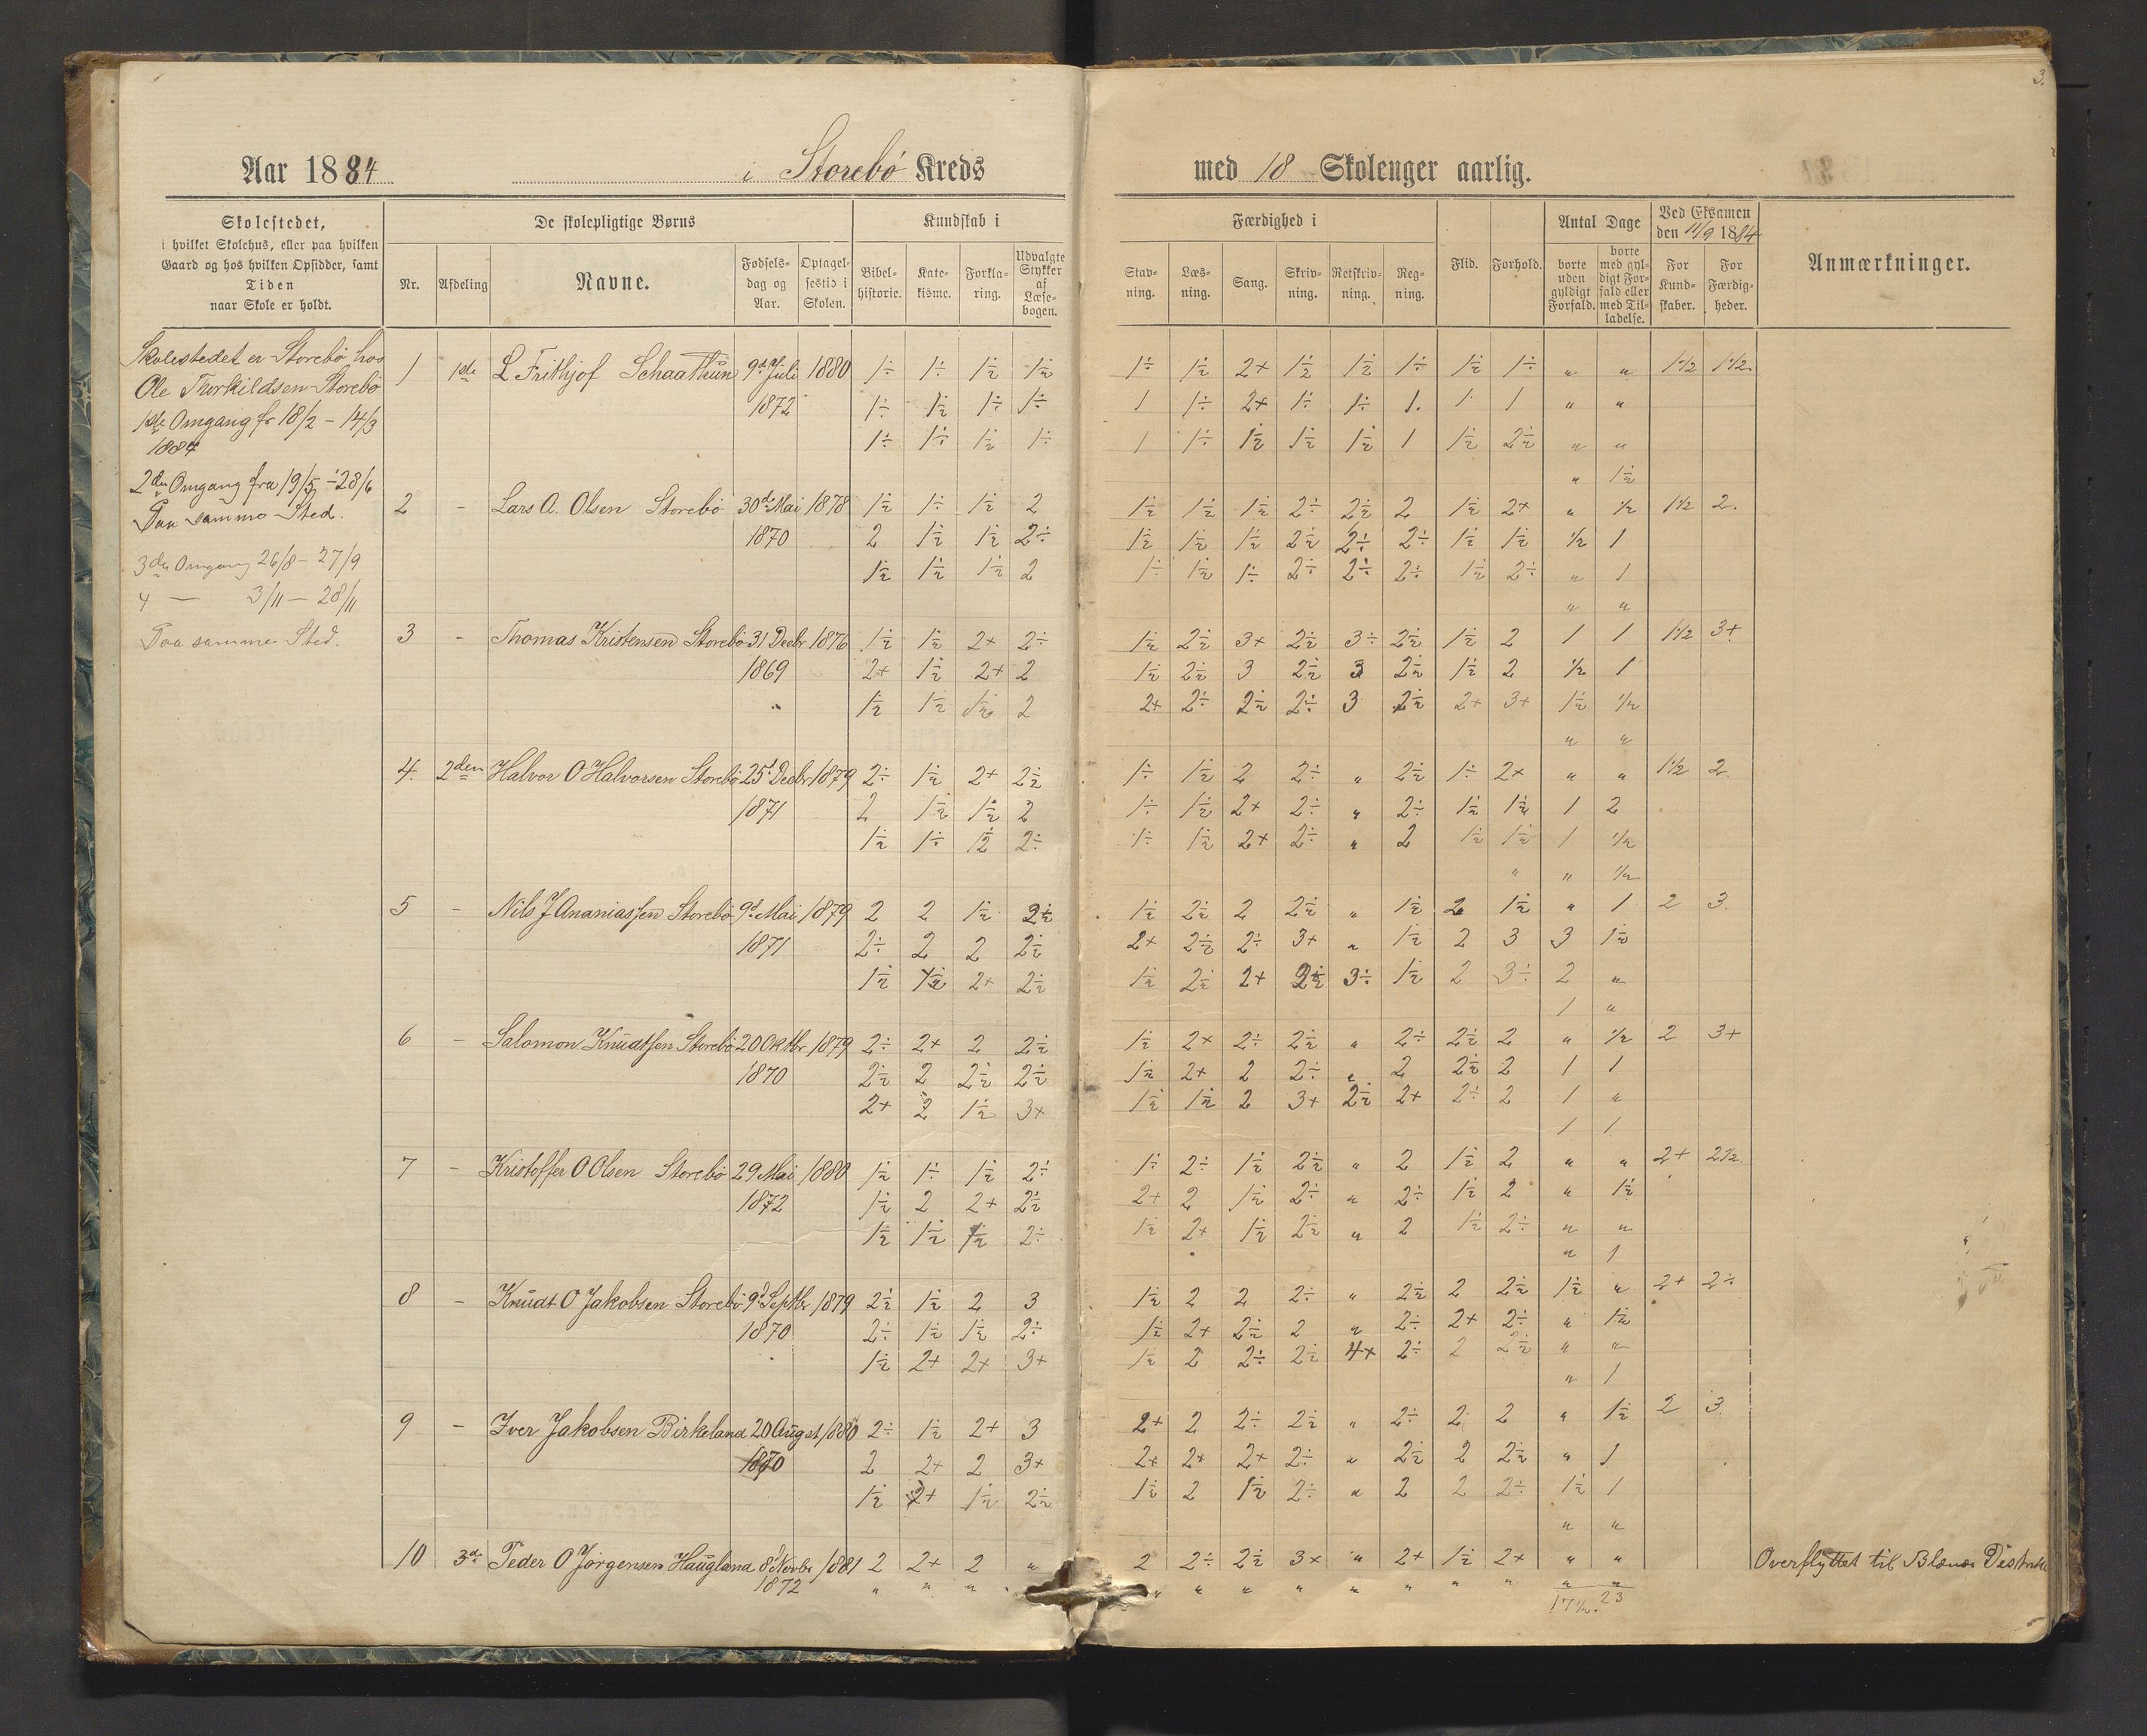 3.
Aar 1884 i Storebö Kreds med 18 Skoleuger aarlig.
Skolestedet,
i hvilket Skolehus, eller paa hvilken
Gaard og hos hvilken Opsidder, samt
Tiden
naar Skole er holdt.
De skolepligtige Børns
Nr. Afdeling Navne. Fødsels-dag og Aar. Optagel-sestid i Skolen.
Kundskab i
Bibel-historie. Kate-kisme. Forkla-ring. Udvalgte Stykker af Læse-bogen.
Færdighed i
Stav-ning. Læs-ning. Sang. Skriv-ning. Retskriv-ning. Reg-ning.
Flid. Forhold.
Antal Dage
borte uden gyldigt Forfald. borte med gyl-digt For-fald eller med Til-ladelse.
Ved Eksamen den 11/9 1884
For Kund-skaber. For Færdig-heder.
Anmærkninger.
Skolestedet er Storebö hos
Ole Thorkildsen Storebö
1ste Omgang fr 18/2 - 14/3
1884
2den Omgang fra 19/5 - 28/6
Paa samme Sted.
3die Omgang 26/8 - 27/9
4 — 3/11 - 28/11
Paa samme Sted.
1 1ste L Frithjof Schaathun 9d Juli 1880 1÷ 1÷ 1½ 1½ 1÷ 1½ 2+ 1½ 1½ 1÷ 1½ 1÷ " " 1½ 1½
1872 1÷ 1½ 1÷ 1÷ 1 1÷ 2+ 1÷ 1÷ 1 1 1 " "
1÷ 1÷ 1½ 1÷ 1 1÷ 1½ 1½ 1½ 1 1½ 2½ " "
" 1½
2 - Lars A. Olsen Storebö 30de Mai 1878 1½ 1÷ 1½ 2 1½ 1½ 1½ 2÷ 2½ 2 1½ 2+ " ½ 1½ 2.
1870 2 1½ 1½ 2÷ 1½ 1½ 1½ 2½ 2÷ 2÷ 1½ 1½ ½ 1
1½ 1½ 1½ 2 1÷ 1½ 1÷ 2÷ 2÷ 2÷ 1½ 2÷ " 1
" "
3 - Thomas Kristensen Storebö 31 Decbr 1876 1½ 1½ 2+ 2÷ 1½ 2½ 3+ 2½ 3÷ 2½ 1½ 2 1 1 1½ 3+
1869 2+ 1½ 2+ 2 1½ 2½ 3 2½ 3 2½ 1½ 2 ½ 1
1½ 1½ 1½ 2 2+ 2÷ 2½ 2÷ 3 2½ 2+ 3+ 1½ ½
" "
4. 2den Halvor O Halvorsen Storebö 25d Decbr 1879 2÷ 1½ 2+ 2½ 1÷ 1½ 2 2÷ " 2½ 1÷ 2+ " " 1½ 2
1871 2 1½ 1½ 2 1÷ 1½ 2+ 2÷ " 2÷ 1½ 1½ 1 2
1½ 1÷ 1½ 2÷ 1÷ 1½ 2+ 2÷ " 2 1½ 1½ 1 ½
" " ½
5 - Nils J Ananiassen Storebö 9d Mai 1879 2 2 1½ 2½ 1½ 2½ 2 2½ " 1½ 2 1½ " 1 2 3
1871 2÷ 2 2 2½ 2+ 2½ 2÷ 3+ " 1½ 2 3 3 1½
1½ 1½ 2+ 2½ 1½ 2½ 2+ 2½ 3÷ 1½ 2 3÷ 2 "
1 "
6 - Salomon Knudtsen Storebö 20 Oktbr 1879 2÷ 2+ 2 2½ 1½ 2+ 2÷ 2½ " 2÷ 2½ 2 " ½ 2 3+
1870 2½ 2 2½ 2½ 1½ 2+ 2 2÷ " 2 2½ 2 1 1
2+ 2 1½ 3+ 1½ 1½ 2 3+ 2½ 2+ 2÷ 2 1 "
1 1
7 - Kristoffer O Olsen Storebö 29 Mai 1880 1½ 1÷ 1½ 2÷ 1÷ 2÷ 1½ 2½ " 2 1½ 2 " " 2+ 2½
1872 1½ 2 2+ 2½ 2+ 2 1½ 2÷ " 2÷ 1½ 2 " 1½
1½ 1½ 1½ 2÷ 1½ 2+ 1½ 2½ " 2 1½ 2÷ " "
" 1
8 - Knudt O Jakobsen Storebö 9d Septbr 1879 2½ 1½ 2 3 1½ 2 2 2÷ " 2½ 2 2½ 1½ " 2+ 2÷
1870 2÷ 1½ 1½ 2÷ 1½ 2+ 2½ 2 " 2÷ 2+ 2÷ " 1½
1½ 2+ 2+ 3+ 1½ 2 2÷ 2½ 4+ 2÷ 2 2½ " "
" 1
9 - Iver Jakobsen Birkeland 20 August 1880 2÷ 1½ 2+ 3 2+ 2 2÷ 2½ " 2÷ 2 2 " 1½ 2 3
1870 2 2+ 2 3+ 2+ 2+ 2+ 2÷ " 2½ 2 2½ " 1
1½ 2+ 1½ 2½ 1½ 2 1½ 2÷ " 2 2 2÷ 1½ 1
" "
10 3die Peder O Jörgensen Haugland 8d Novbr 1881 2 2+ 2 " 2 2÷ 2½ 3+ " 2+ 1½ 2+ " " Overflyttet til Distrikt
1872 " " " " " " " " " " " " " "
17½ 23